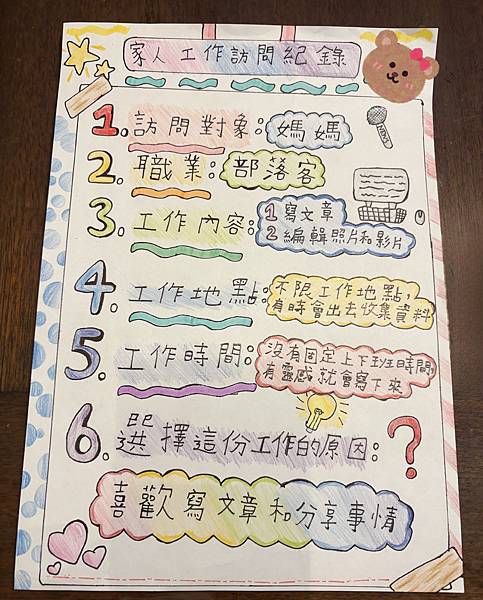 家人工作訪問紀錄
1.訪問對象:媽媽
2.職業:部落客
3.工作內容:1寫文章
2編輯照片和影片
4.工作地點:不限工作地點,
有時會出去收集資料
5.工作時間:沒有固定上下班時間,
有靈感就會寫下來
6.選擇這份工作的原因:?
喜歡寫文章和分享事情